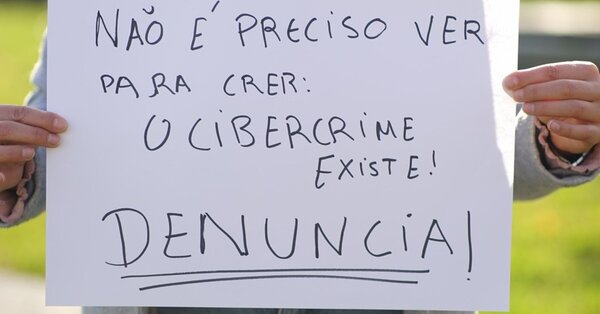 NÃO É PRECISO VER
PARA CRER:
O CIBERCRIME
EXISTE!
DENUNCIA!